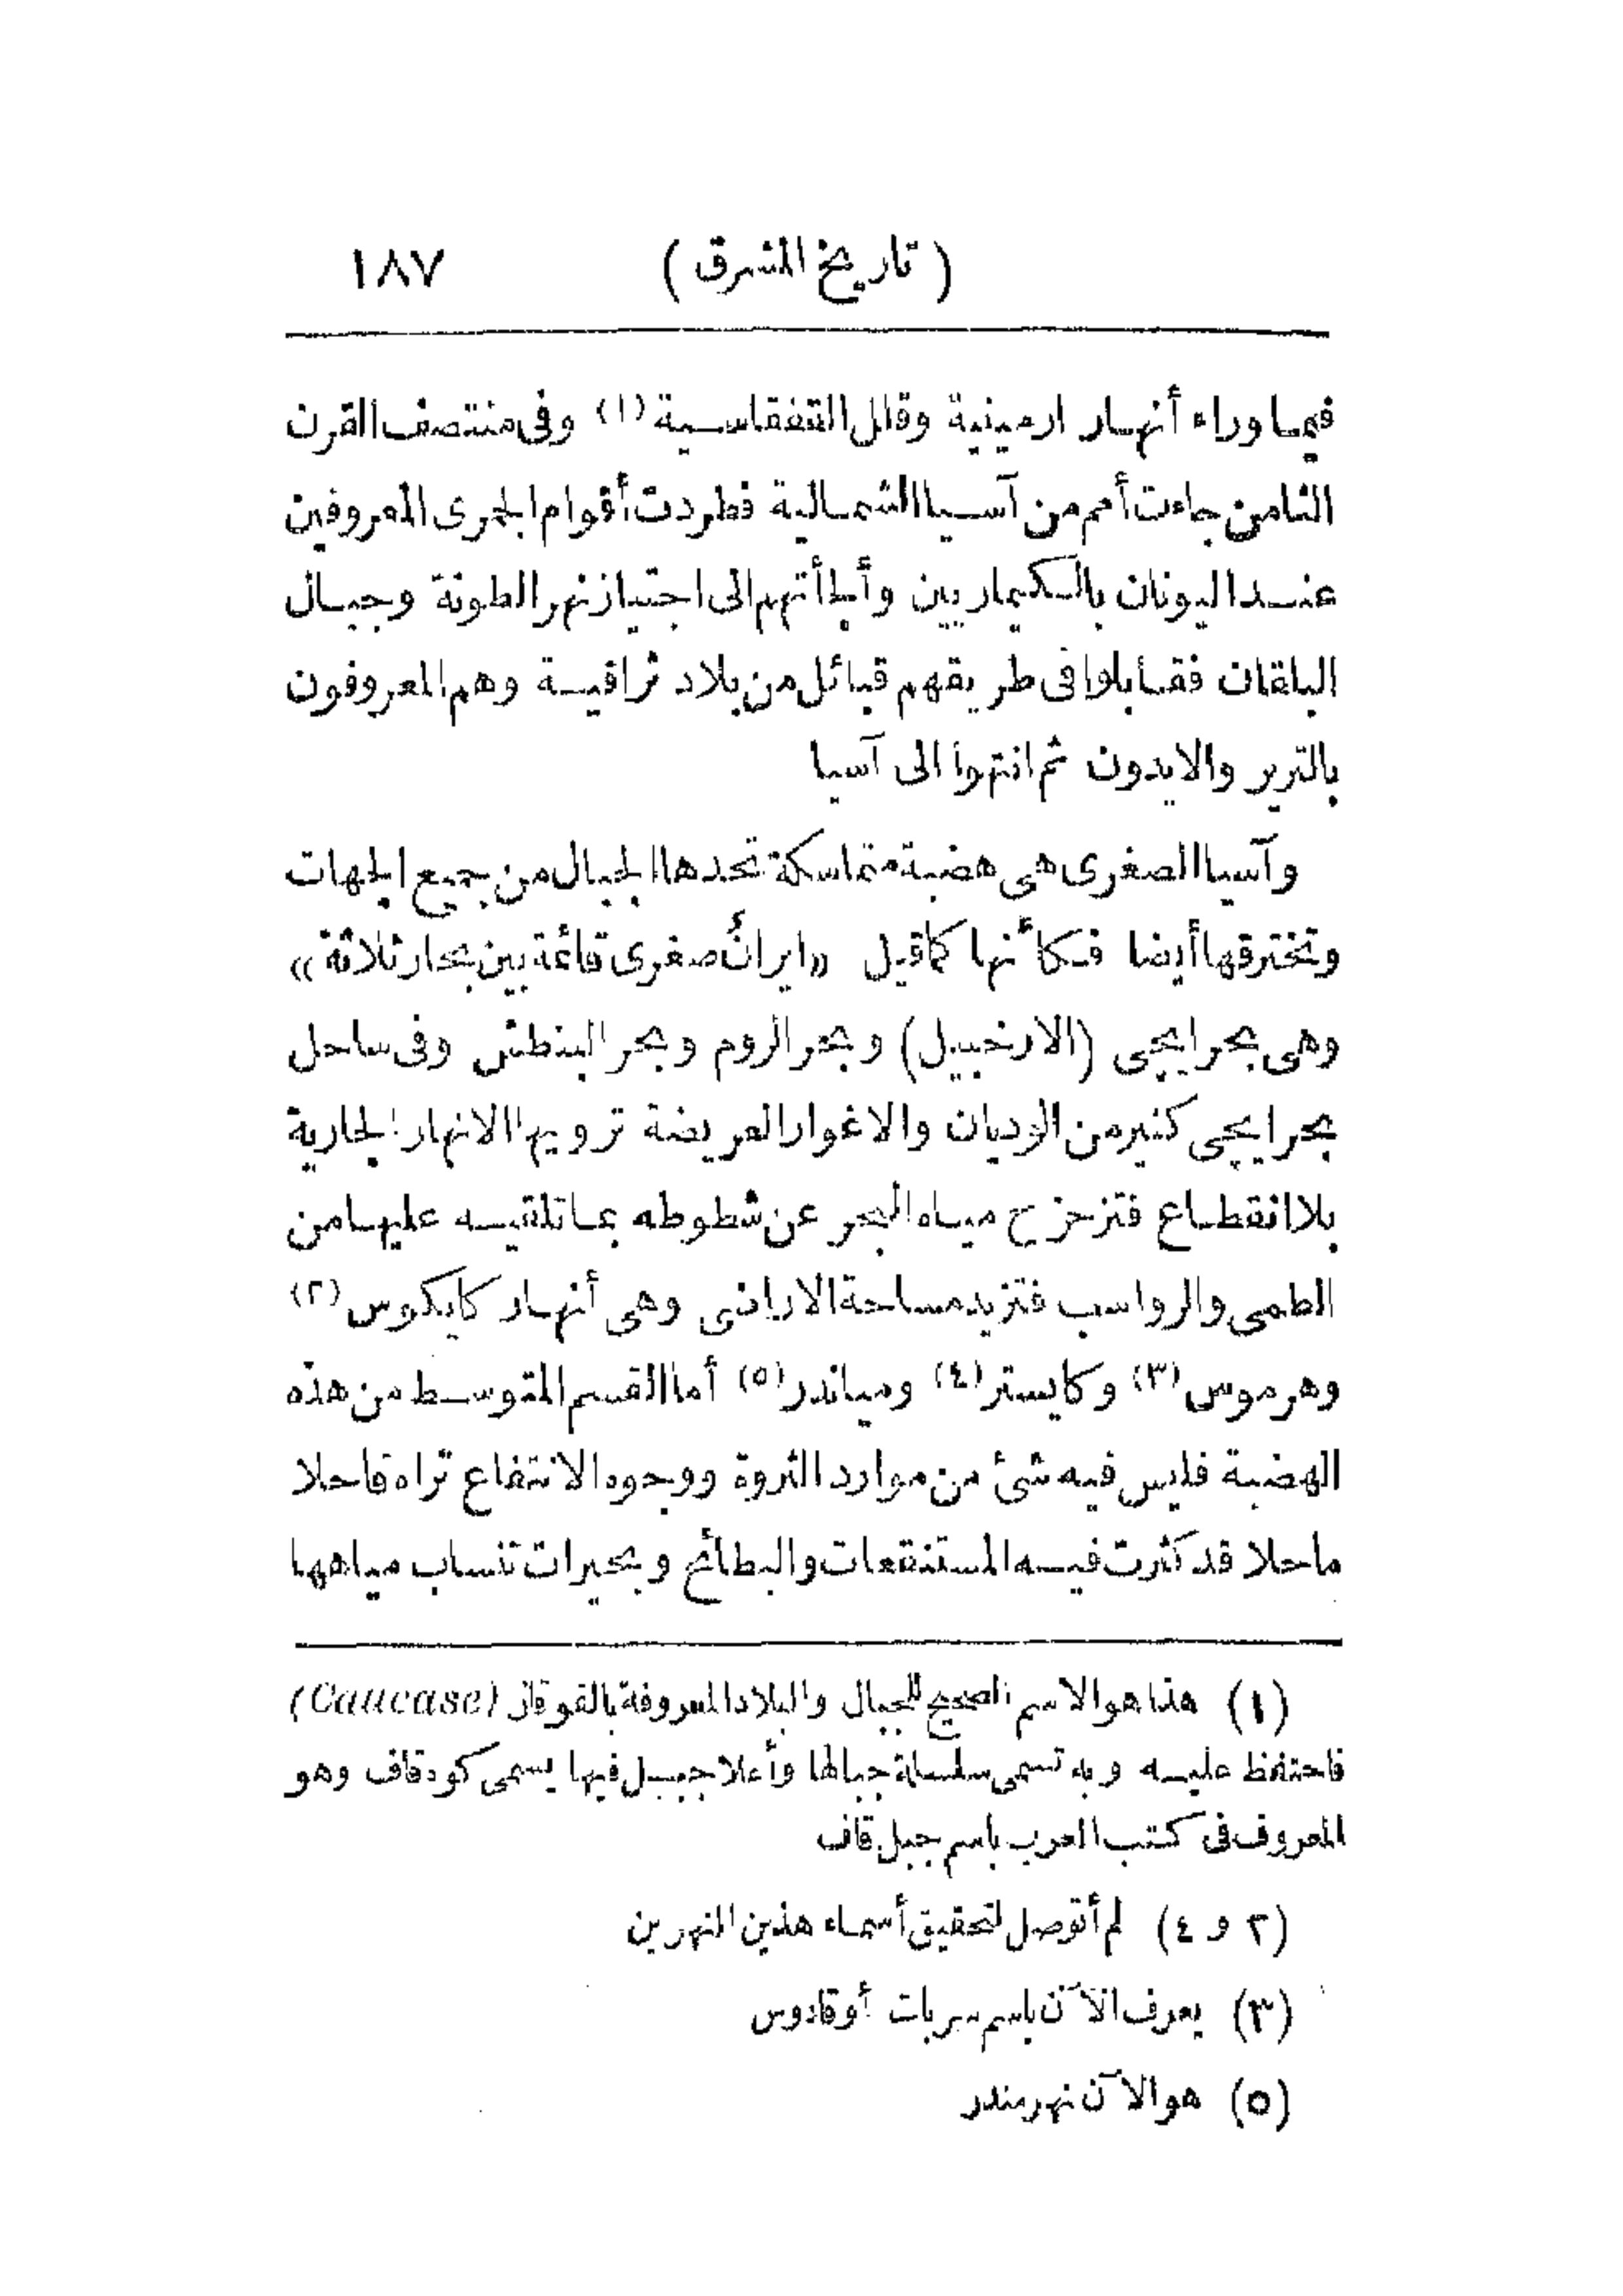 ( تاريخ المشرق ) ١٨٧
فيما وراء أنهار ارمينية وقلل القفقاسية (١) وفى منتصف القرن
الثامن جاءت أمم من آسيا الشمالية فطردت أقوام الجمرى المعروفين
عند اليونان بالسكيماريين وألجأتهم الى اجتياز نهر الطونة وجبال
البلقان فقابلوا فى طريقهم قبائل من بلاد ثراقية وهم المعروفون
بالترير والايدون ثم انتهوا الى آسيا
وآسيا الصغرى هى هضبة متماسكة تحدها الجبال من جميع الجهات
وتخترقها أيضا فكأنها كما قيل «ايرانُ صغرى قائمة بين بحار ثلاثة»
وهى بحر ايجى (الارخبيل) وبحر الروم وبحر البنطش وفى ساحل
بحر ايجى كثير من الوديان والاغوار العريضة ترويها الانهار الجارية
بلا انقطاع فتزحزح مياه البحر عن شطوطه بما تلقيه عليها من
الطمى والرواسب فتزيد مساحة الاراضى وهى أنهار كايكوس (٢)
وهرموس (٣) وكايستر (٤) ومياندر (٥) أما القسم المتوسط من هذه
الهضبة فليس فيه شئ من موارد الثروة ووجوه الانتفاع تراه قاحلا
ماحلا قد كثرت فيه المستنقعات والبطائح وبحيرات تنساب مياهها
(١) هذا هو الاسم الصحيح للجبال والبلاد المعروفة بالقوقاز (Caucase)
فاحتفظ عليه وبه تسمى سلسلة جبالها وأعلا جبل فيها يسمى كوه قاف وهو
المعروف فى كتب العرب باسم جبل قاف
(٢ و ٤) لم أتوصل لتحقيق أسماء هذين النهرين
(٣) يعرف الآن باسم سربات أو قادوس
(٥) هو الآن نهر مندر